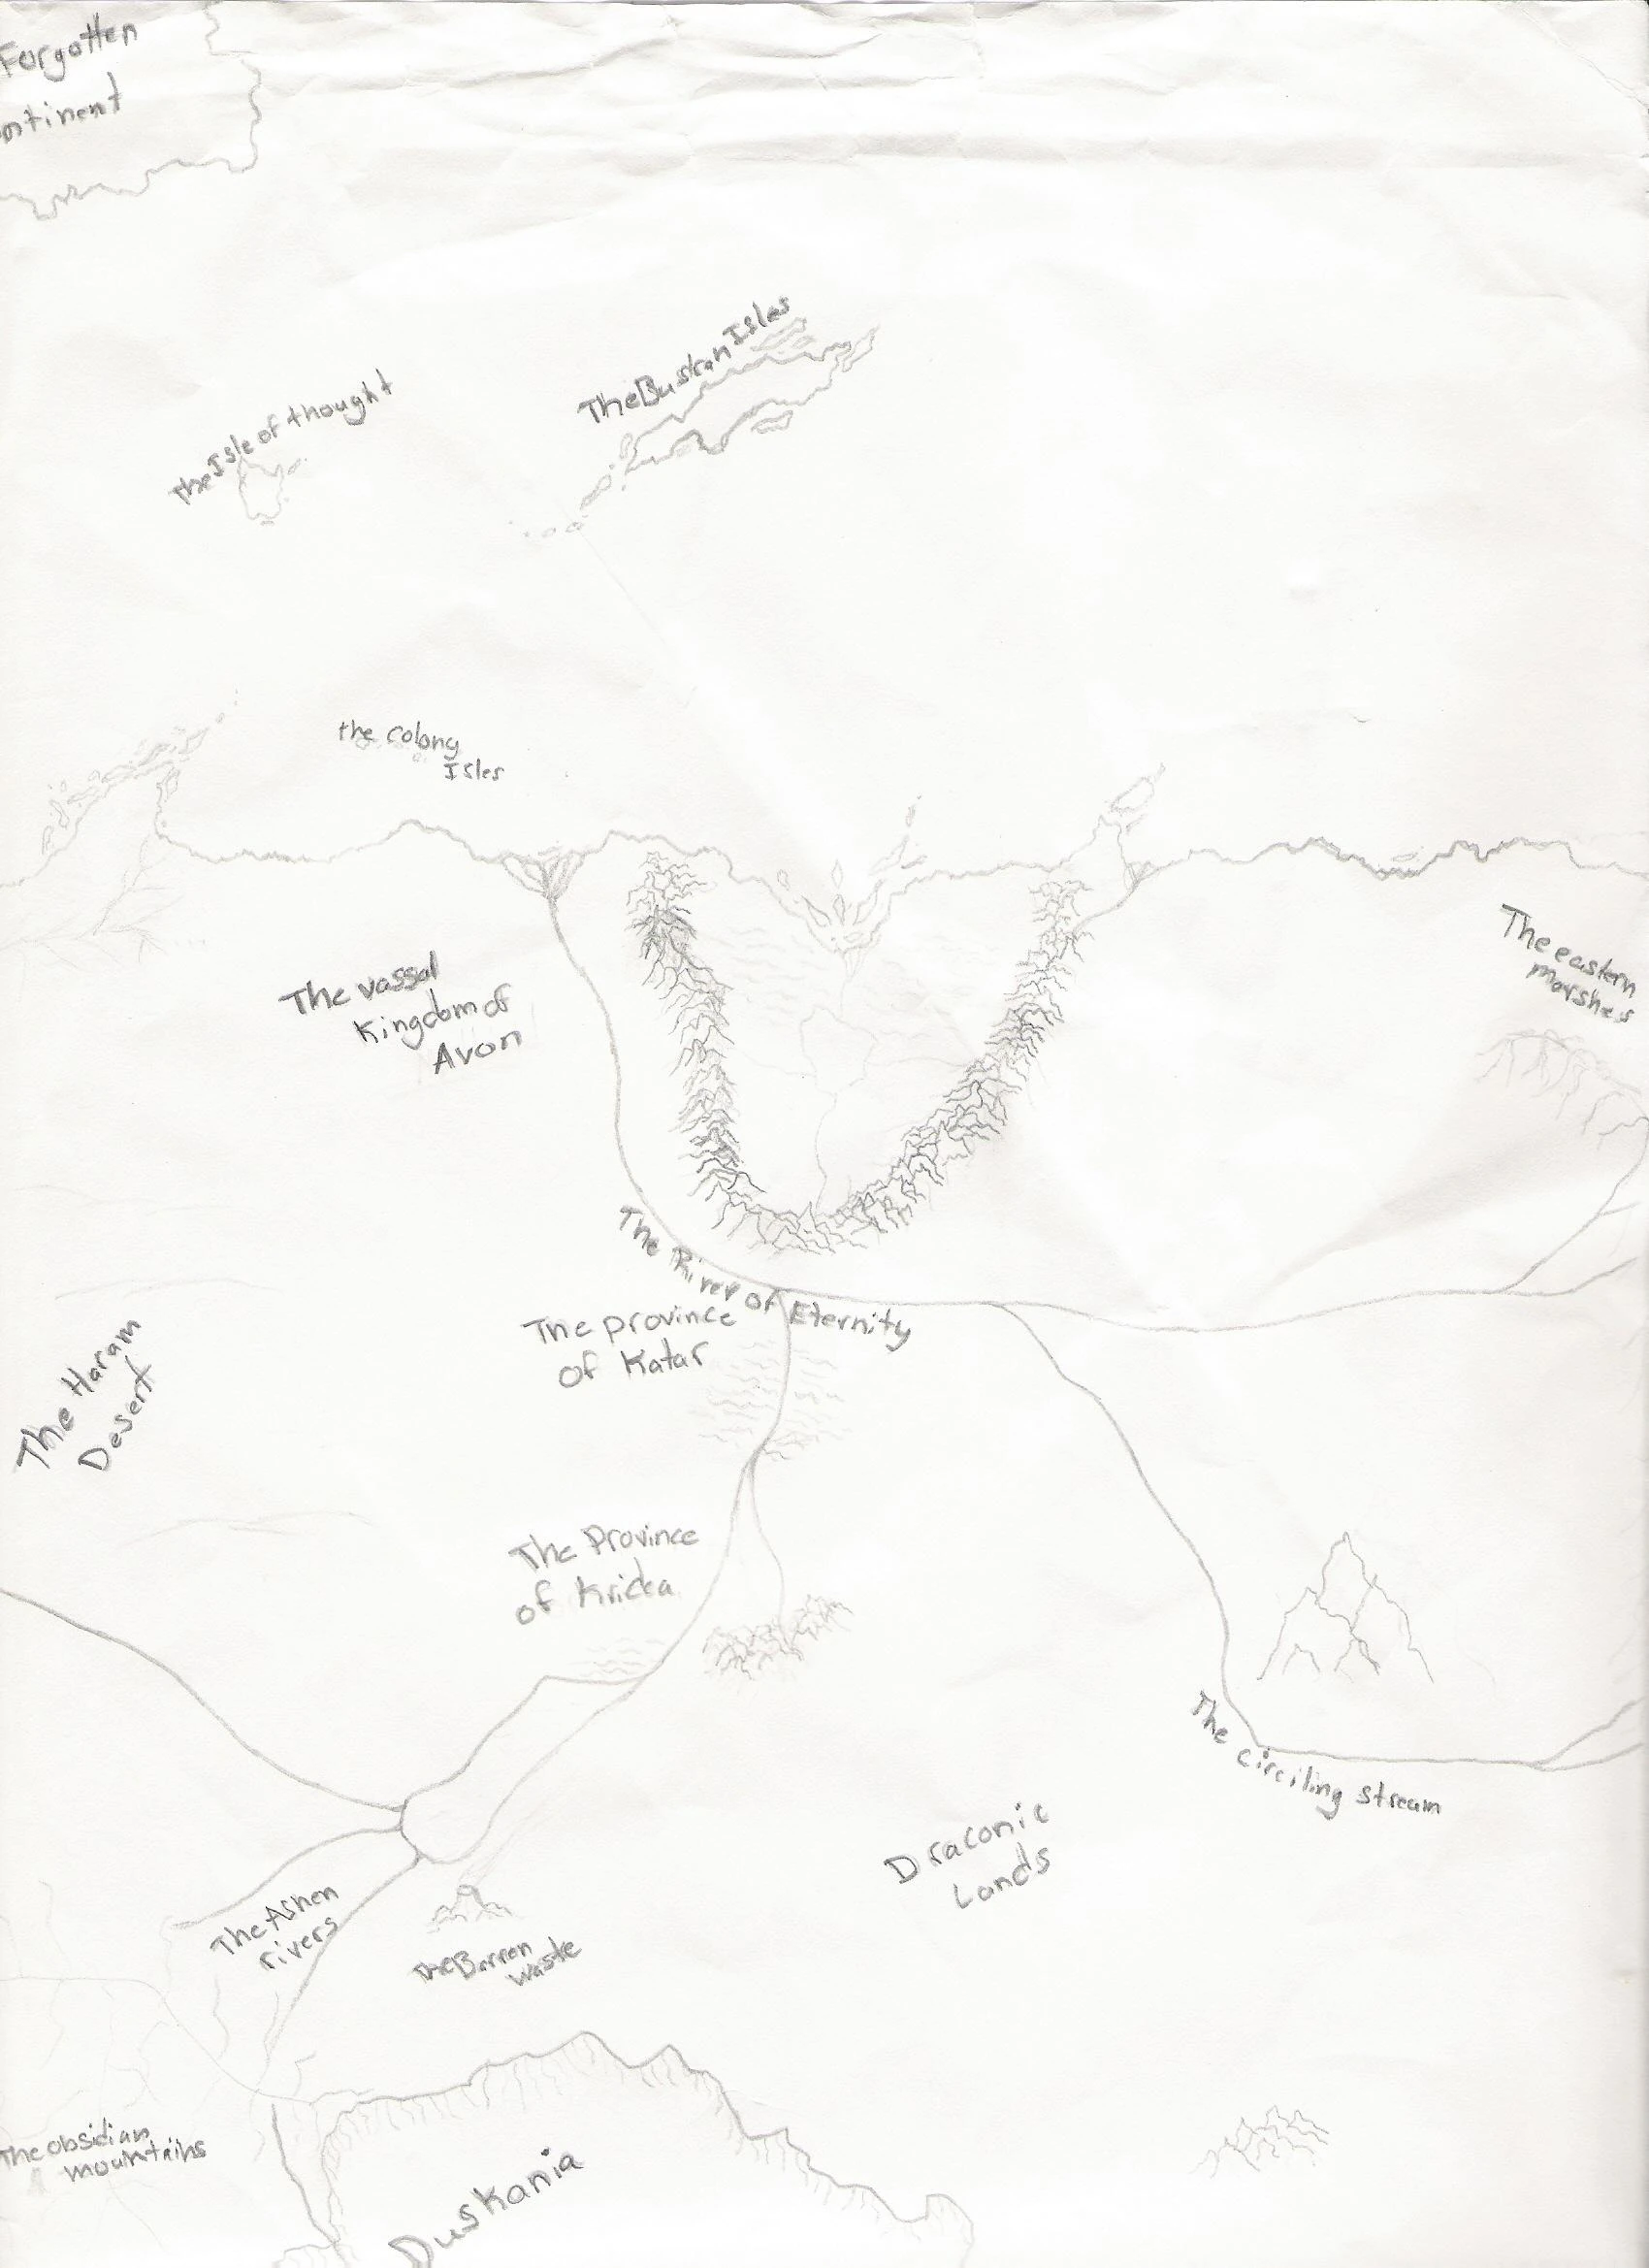 Forgotten
ontinent
The Buskan Isles
the Isle of thought
the Colony
Isles
The eastern
marshes
The vassal
Kingdom of
Avon
The River of Eternity
The province
of Katar
The Haram
Desert
The Province
of Kricka
The circiling stream
Draconic
Lands
The Ashen
rivers
the Barren
waste
The obsidian
mountains
Duskania